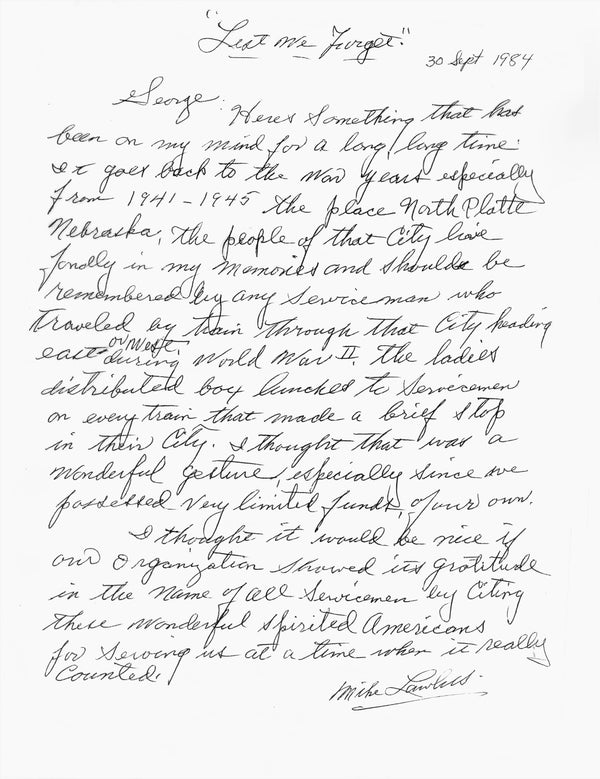 "Lest We Forget."
30 Sept 1984
George: Heres something that has
been on my mind for a long, long time:
It goes back to the war years especially
from 1941-1945 the place North Platte
Nebraska, the people of that City live
fondly in my memories and should be
remembered by any service man who
traveled by train through that City heading
east or West during World War II. The ladies
distributed box lunches to Servicemen
on every train that made a brief stop
in their City. I thought that was a
wonderful gesture, especially since we
possessed very limited funds, of our own.
I thought it would be nice if
our organization showed its gratitude
in the name of all Servicemen by Citing
these wonderful spirited Americans
for serving us at a time when it really
Counted.
Mike